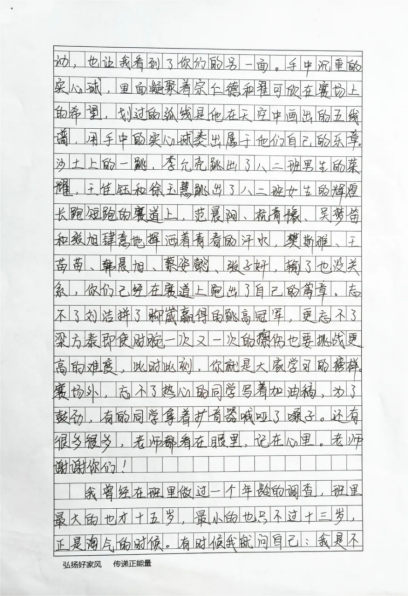 动，也让我看到了你们的另一面。手中沉重的
实心球，里面凝聚着宗仁德和翟可欣在赛场上
的希望，划过的弧线是他在天空中画出的五线
谱，用手中的实心球奏出属于他们自己的乐章。
沙土上的一跳，李允克跳出了八二班男生的荣
耀，王佳钰和徐玉慧跳出了八二班女生的辉煌
长跑短跑的赛道上，范晨阳、杨雨馨、吴梦苗
和旭肆意地挥洒着青春的汗水，樊斯雅、王
苗苗、韩晨旭、蔡姿懿、张子轩，输了也没关
系，你们已经在赛道上跑出了自己的篇章。忘
不了刘洁拼了脚崴赢得的跳高冠军，更忘不了
梁方袁即使时跑一次又一次的擦伤也要挑战更
高的难度，此时此刻，你就是大家学习的榜样
赛场外，忘不了热心的同学写着加油稿，为了
鼓劲，有的同学拿着扩音器喊哑了嗓子。还有
很多很多，老师都看在眼里，记在心里。老师
谢谢你们！
我曾经在班里做过一个年龄的调查，班里
最大的也才十五岁，最小的也只不过十三岁，
正是淘气的时候。有时候我就问自己：我是不
弘扬好家风 传递正能量